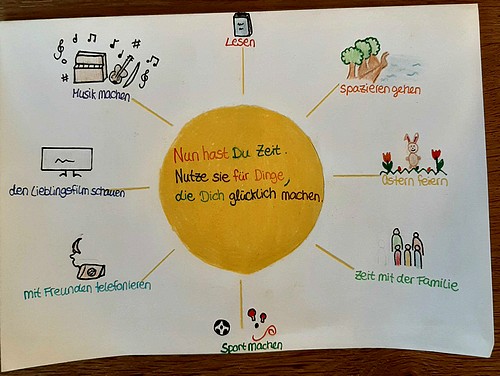 Lesen
Musik machen
spazieren gehen
Nun hast Du Zeit.
Nutze sie für Dinge,
die Dich glücklich machen.
den Lieblingsfilm schauen
Ostern feiern
mit Freunden telefonieren
Zeit mit der Familie
Sport machen